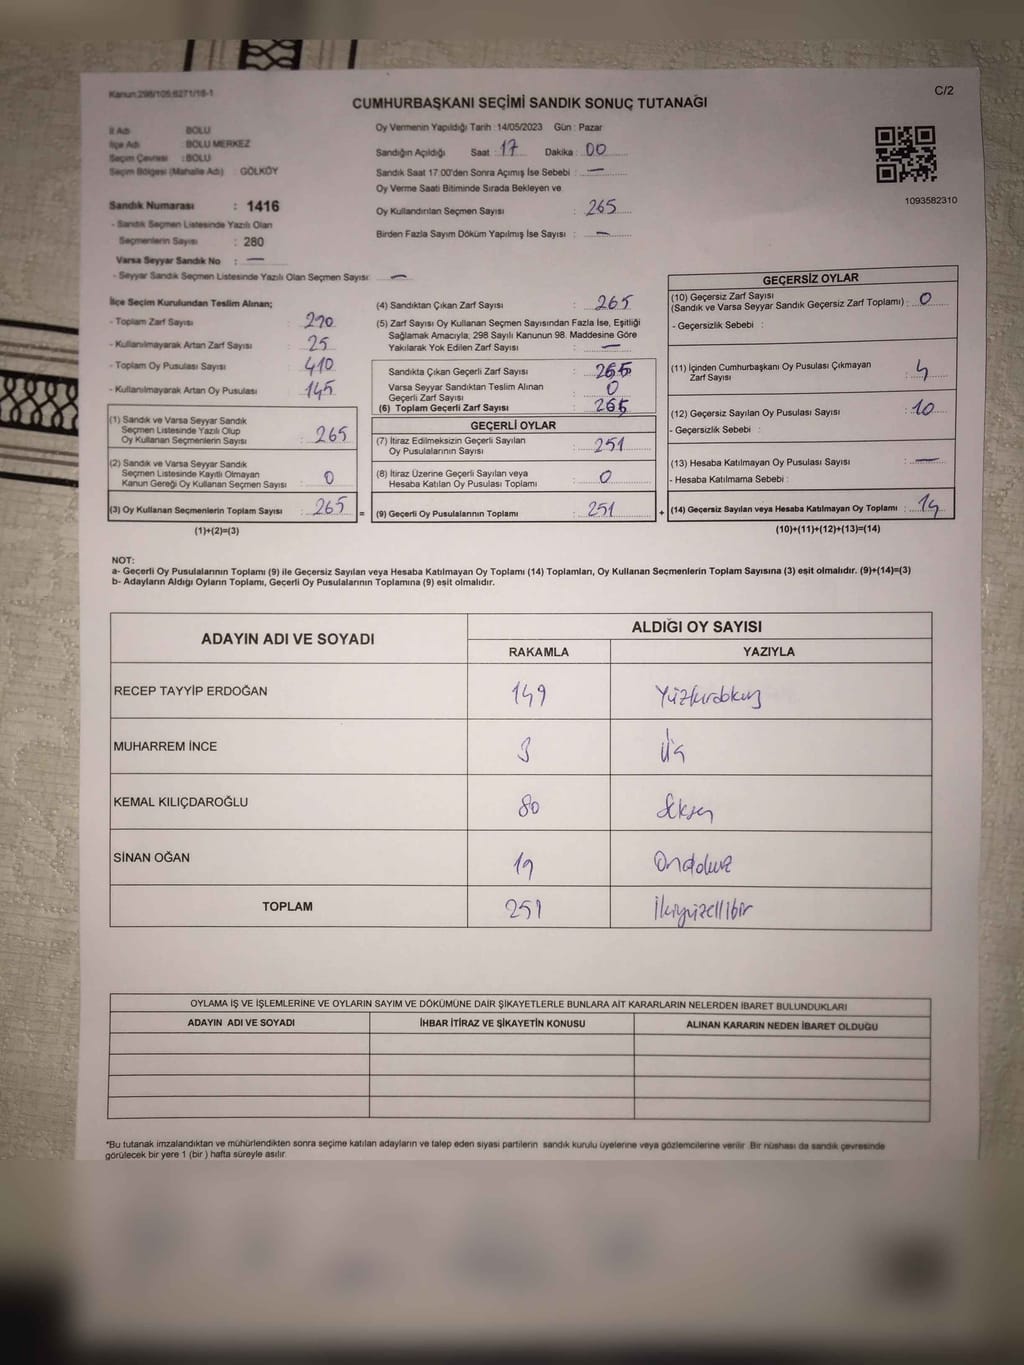 Kanun:298/105,6271/18-1
C/2
CUMHURBAŞKANI SEÇİMİ SANDIK SONUÇ TUTANAĞI
İl Adı : BOLU
İlçe Adı : BOLU MERKEZ
Seçim Çevresi : BOLU
Seçim Bölgesi (Mahalle Adı) : GÖLKÖY
Sandık Numarası : 1416
- Sandık Seçmen Listesinde Yazılı Olan
Seçmenlerin Sayısı : 280
Varsa Seyyar Sandık No : —
- Seyyar Sandık Seçmen Listesinde Yazılı Olan Seçmen Sayısı: —
Oy Vermenin Yapıldığı Tarih : 14/05/2023 Gün : Pazar
Sandığın Açıldığı Saat : 17 Dakika : 00
Sandık Saat 17.00'den Sonra Açımış İse Sebebi : —
Oy Verme Saati Bitiminde Sırada Bekleyen ve
Oy Kullandırılan Seçmen Sayısı : 265
Birden Fazla Sayım Döküm Yapılmış İse Sayısı : —
1093582310
İlçe Seçim Kurulundan Teslim Alınan;
- Toplam Zarf Sayısı : 290
- Kullanılmayarak Artan Zarf Sayısı : 25
- Toplam Oy Pusulası Sayısı : 410
- Kullanılmayarak Artan Oy Pusulası : 145
(1) Sandık ve Varsa Seyyar Sandık
Seçmen Listesinde Yazılı Olup
Oy Kullanan Seçmenlerin Sayısı : 265
(2) Sandık ve Varsa Seyyar Sandık
Seçmen Listesinde Kayıtlı Olmayan
Kanun Gereği Oy Kullanan Seçmen Sayısı : 0
(3) Oy Kullanan Seçmenlerin Toplam Sayısı : 265 =
(1)+(2)=(3)
(4) Sandıktan Çıkan Zarf Sayısı : 265
(5) Zarf Sayısı Oy Kullanan Seçmen Sayısından Fazla İse, Eşitliği
Sağlamak Amacıyla, 298 Sayılı Kanunun 98. Maddesine Göre
Yakılarak Yok Edilen Zarf Sayısı : —
Sandıkta Çıkan Geçerli Zarf Sayısı : 265
Varsa Seyyar Sandıktan Teslim Alınan
Geçerli Zarf Sayısı : 0
(6) Toplam Geçerli Zarf Sayısı : 265
GEÇERLİ OYLAR
(7) İtiraz Edilmeksizin Geçerli Sayılan
Oy Pusulalarının Sayısı : 251
(8) İtiraz Üzerine Geçerli Sayılan veya
Hesaba Katılan Oy Pusulası Toplamı : 0
(9) Geçerli Oy Pusulalarının Toplamı : 251 +
GEÇERSİZ OYLAR
(10) Geçersiz Zarf Sayısı
(Sandık ve Varsa Seyyar Sandık Geçersiz Zarf Toplamı) : 0
- Geçersizlik Sebebi :
(11) İçinden Cumhurbaşkanı Oy Pusulası Çıkmayan
Zarf Sayısı : 4
(12) Geçersiz Sayılan Oy Pusulası Sayısı : 10
- Geçersizlik Sebebi :
(13) Hesaba Katılmayan Oy Pusulası Sayısı : —
- Hesaba Katılmama Sebebi :
(14) Geçersiz Sayılan veya Hesaba Katılmayan Oy Toplamı : 14
(10)+(11)+(12)+(13)=(14)
NOT:
a- Geçerli Oy Pusulalarının Toplamı (9) ile Geçersiz Sayılan veya Hesaba Katılmayan Oy Toplamı (14) Toplamları, Oy Kullanan Seçmenlerin Toplam Sayısına (3) eşit olmalıdır. (9)+(14)=(3)
b- Adayların Aldığı Oyların Toplamı, Geçerli Oy Pusulalarının Toplamına (9) eşit olmalıdır.
ADAYIN ADI VE SOYADI
ALDIĞI OY SAYISI
RAKAMLA YAZIYLA
RECEP TAYYİP ERDOĞAN 149 Yüzkırkdokuz
MUHARREM İNCE 3 Üç
KEMAL KILIÇDAROĞLU 80 Seksen
SİNAN OĞAN 19 Ondokuz
TOPLAM 251 İkiyüzellibir
OYLAMA İŞ VE İŞLEMLERİNE VE OYLARIN SAYIM VE DÖKÜMÜNE DAİR ŞİKAYETLERLE BUNLARA AİT KARARLARIN NELERDEN İBARET BULUNDUKLARI
ADAYIN ADI VE SOYADI İHBAR İTİRAZ VE ŞİKAYETİN KONUSU ALINAN KARARIN NEDEN İBARET OLDUĞU
*Bu tutanak imzalandıktan ve mühürlendikten sonra seçime katılan adayların ve talep eden siyasi partilerin sandık kurulu üyelerine veya gözlemcilerine verilir .Bir nüshası da sandık çevresinde
görülecek bir yere 1 (bir ) hafta süreyle asılır.